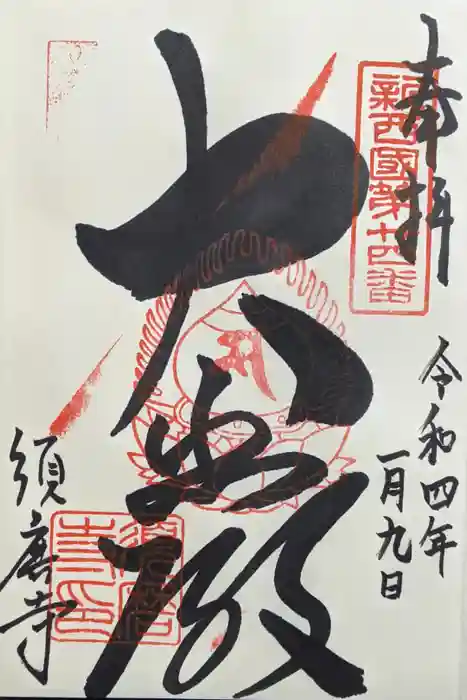 奉拝
新西國第廿四番
令和四年
一月九日
大悲殿
須磨寺